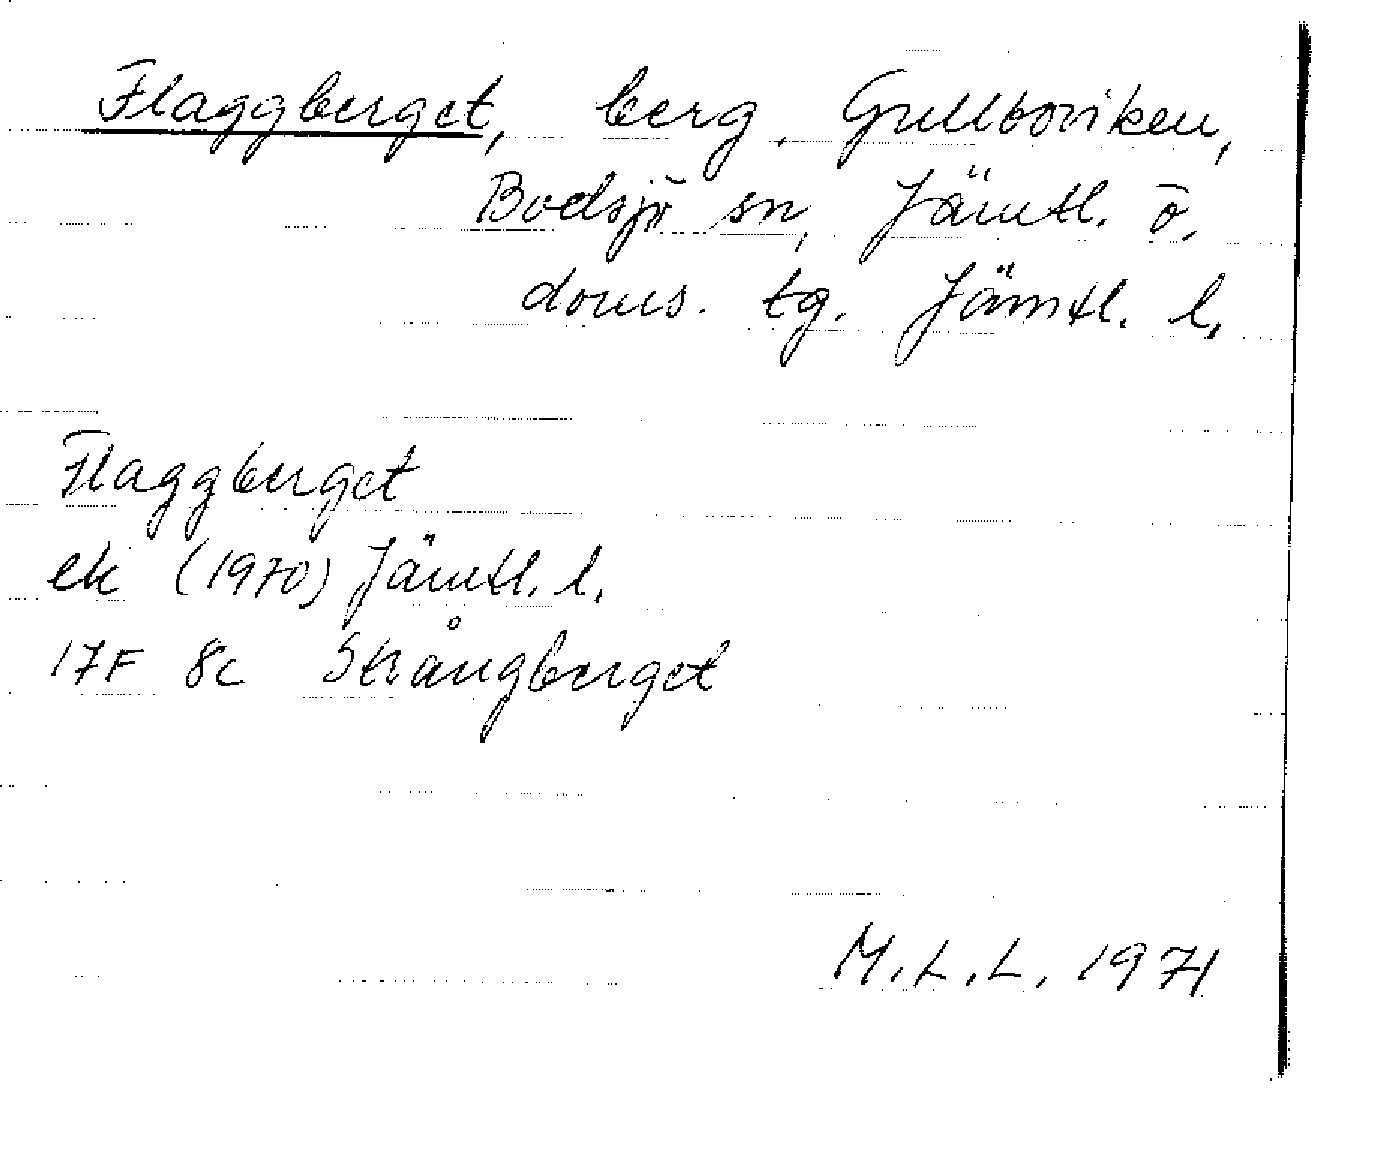 Flaggberget, berg, Gullboviken,
Bodsjö sn, Jämtl. ö.
doms. tg. Jämtl. l.
Flaggberget
ek (1970) Jämtl. l.
17F 8c Strångberget
M.L.L. 1971